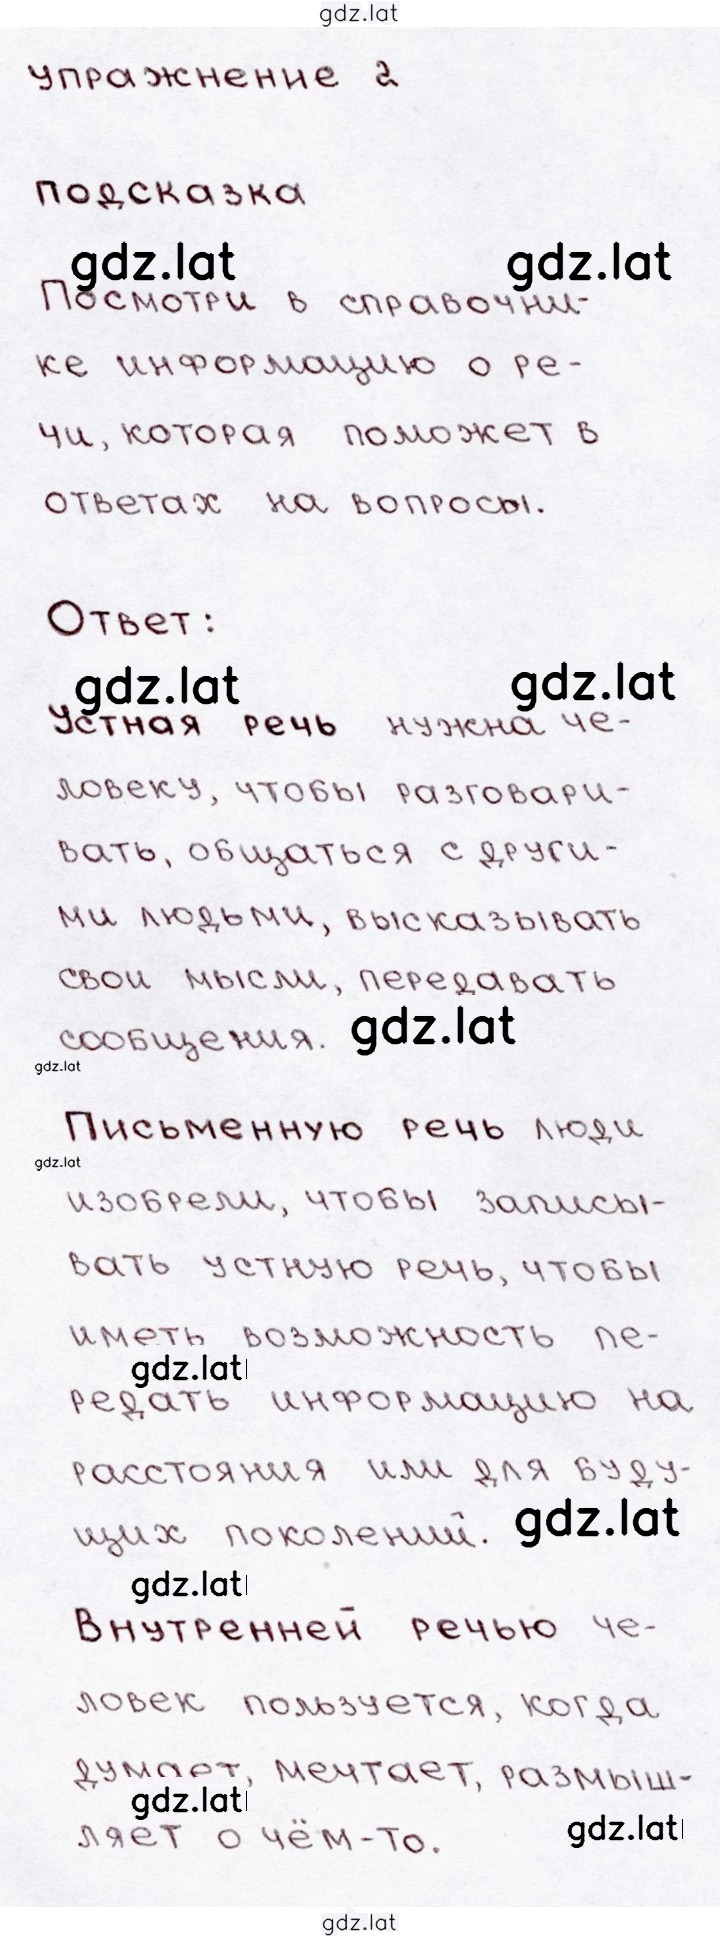 gdz.lat
упражнение 2
подсказка
gdz.lat gdz.lat
Посмотри в справочни-
ке информацию о ре-
чи, которая поможет в
ответах на вопросы.
Ответ:
gdz.lat gdz.lat
Устная речь нужна че-
ловеку, чтобы разговари-
вать, общаться с други-
ми людьми, высказывать
свои мысли, передавать
сообщения. gdz.lat
gdz.lat
Письменную речь люди
gdz.lat
изобрели, чтобы записы-
вать устную речь, чтобы
иметь возможность пе-
gdz.lat
редать информацию на
расстояния или для буду-
щих поколений. gdz.lat
gdz.lat
Внутренней речью че-
ловек пользуется, когда
думает, мечтает, размыш-
gdz.lat
ляет о чём-то. gdz.lat
gdz.lat